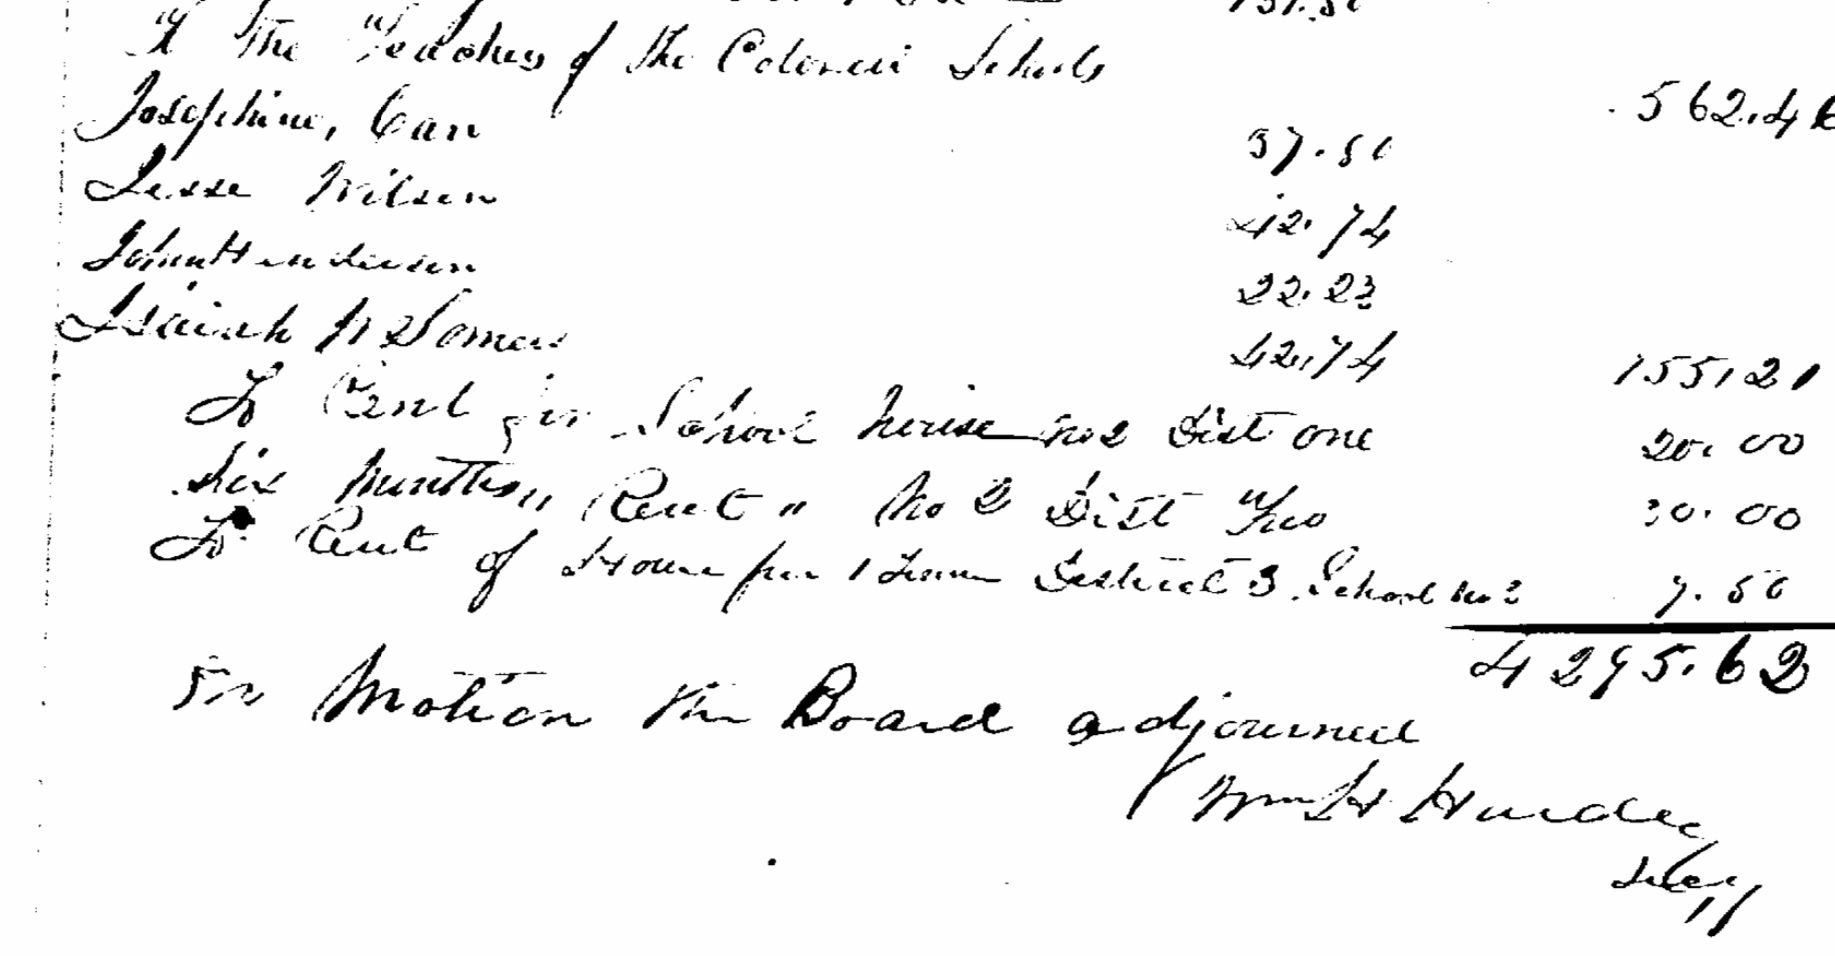 To The Teachers of the Colored Schools
562.46
Josephine, Carr 47.50
Jesse Wilson 42.74
John Henderson 22.23
Isaiah W Somers 42.74 155,21
To Rent for School house No 2 Dist one 20.00
Six months,, Rent " No 2 Dist Two 30.00
To Rent of House for 1 Term District 3. School No 2 7.50
On Motion the Board adjourned 4295.62
Wm H Hardey
Secy